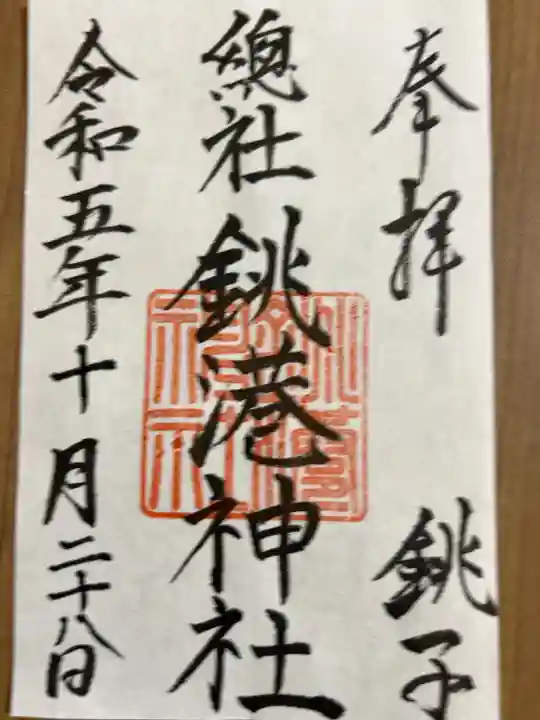 奉拝 銚子
總社 銚港神社
令和五年十月二十八日